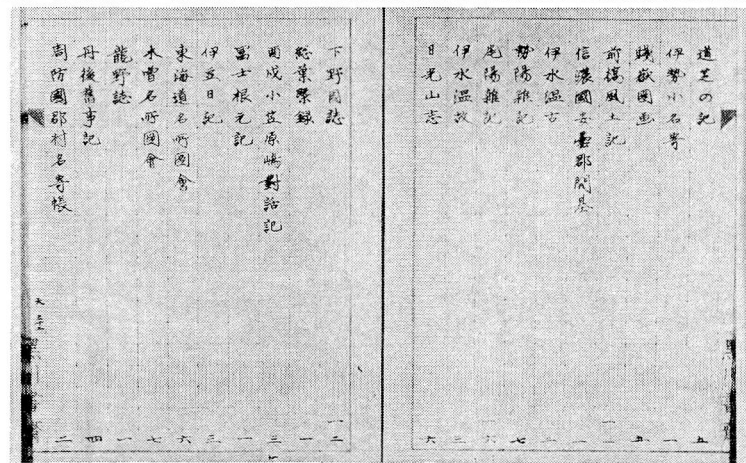 道芝の記 五
伊勢小名寄 一
賤嶽図画 五
前橋風土記 一
信濃國安曇郡開基 一
伊水温古 二
勢陽雑記 七
尾陽雑記 六
伊水温故 三
日光山志 六
下野国誌 二
総葉槩録 一
西戌小笠原嶋對話記 三
冨士根元記 一
伊豆日記 三
東海道名所圖會 六
木曽名所圖會 七
龍野誌 一
丹後舊事記 四
周防國郡村名寄帳 二